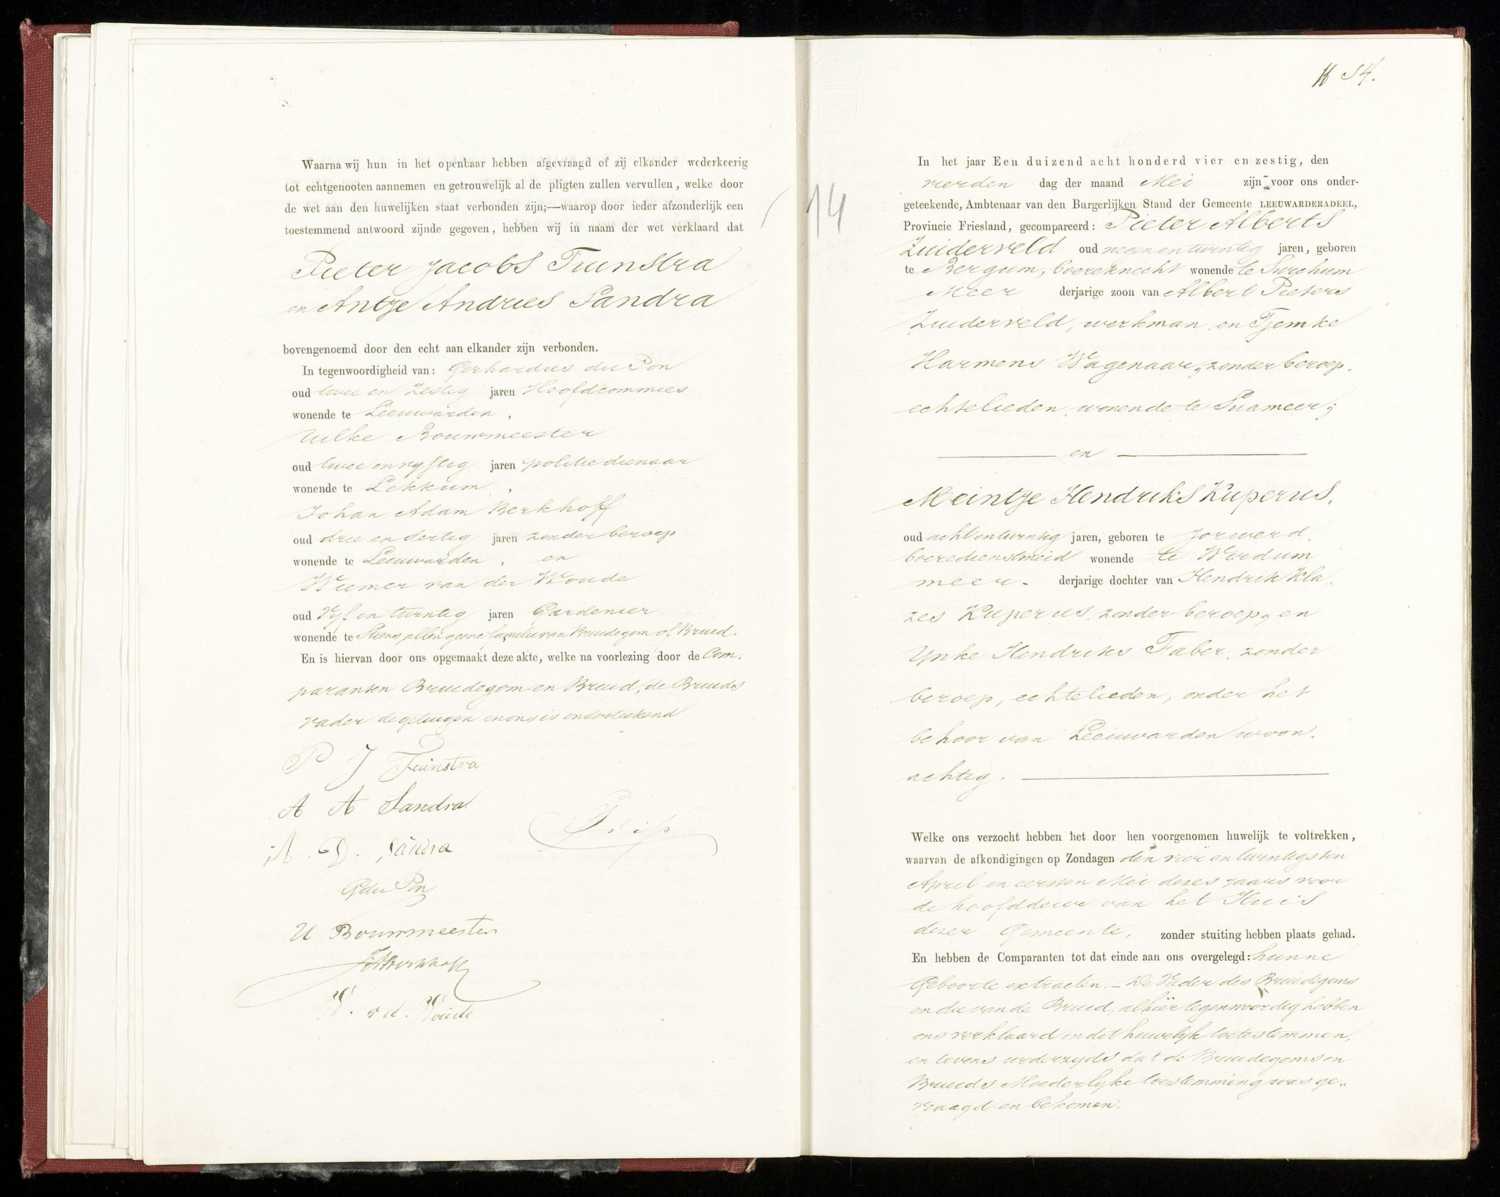 Waarna wij hun in het openbaar hebben afgevraagd of zij elkander wederkeerig
tot echtgenooten aannemen en getrouwelijk al de pligten zullen vervullen, welke door
de wet aan den huwelijken staat verbonden zijn;—waarop door ieder afzonderlijk een
toestemmend antwoord zijnde gegeven, hebben wij in naam der wet verklaard dat
Pieter Jacobs Tuinstra
en Antje Andries Sandra
bovengenoemd door den echt aan elkander zijn verbonden.
In tegenwoordigheid van: Gerhardus du Pon
oud twee en zestig jaren Hoofdcommies
wonende te Leeuwarden,
Uilke Bouwmeester
oud twee en vyftig jaren politiedienaar
wonende te Lekkum,
Johan Adam Berkhoff
oud drie en dertig jaren zonder beroep
wonende te Leeuwarden, en
Wiemer van der Woude
oud Vyf en twintig jaren Gardenier
wonende te Stiens allen geene familie van Bruidegom of Bruid.
En is hiervan door ons opgemaakt deze akte, welke na voorlezing door de Com-
paranten Bruidegom en Bruid, de Bruids
vader de getuigen en ons is onderteekend
P J Tuinstra
A A Sandra
A. D. Sandra
G du Pon
U Bouwmeester
JA Berkhoff
W. v d. Woude
14
14.
In het jaar Een duizend acht honderd vier en zestig, den
vierden dag der maand Mei zijn voor ons onder-
geteekende, Ambtenaar van den Burgerlijken Stand der Gemeente LEEUWARDERADEEL,
Provincie Friesland, gecompareerd: Pieter Alberts
Zuiderveld oud negen en twintig jaren, geboren
te Bergum, boereknecht wonende te Swichum
Meer derjarige zoon van Albert Pieters
Zuiderveld, werkman en Tjemke
Harmens Wagenaar, zonder beroep,
echtelieden, wonende te Suameer;
en
Meintje Hendriks Kuperus,
oud acht en twintig jaren, geboren te Jorwerd,
boeredienstmeid wonende te Wirdum
meer- derjarige dochter van Hendrik Kla-
zes Kuperus, zonder beroep, en
Ynke Hendriks Faber, zonder
beroep, echtelieden, onder het
behoor van Leeuwarden woon-
achtig.
Welke ons verzocht hebben het door hen voorgenomen huwelijk te voltrekken,
waarvan de afkondigingen op Zondagen den vier en twintigsten
April en eersten Mei dezes jaars voor
de hoofddeur van het Huis
dezer Gemeente, zonder stuiting hebben plaats gehad.
En hebben de Comparanten tot dat einde aan ons overgelegd: hunne
Geboorte extracten. — De Vader des Bruidegoms
en die van de Bruid, alhier tegenwoordig hebben
ons verklaard in dit huwelijk toetestemmen,
en tevens wederzyds dat de Bruidegoms en
Bruids Moederlyke toestemming was ge-
vraagd en bekomen.